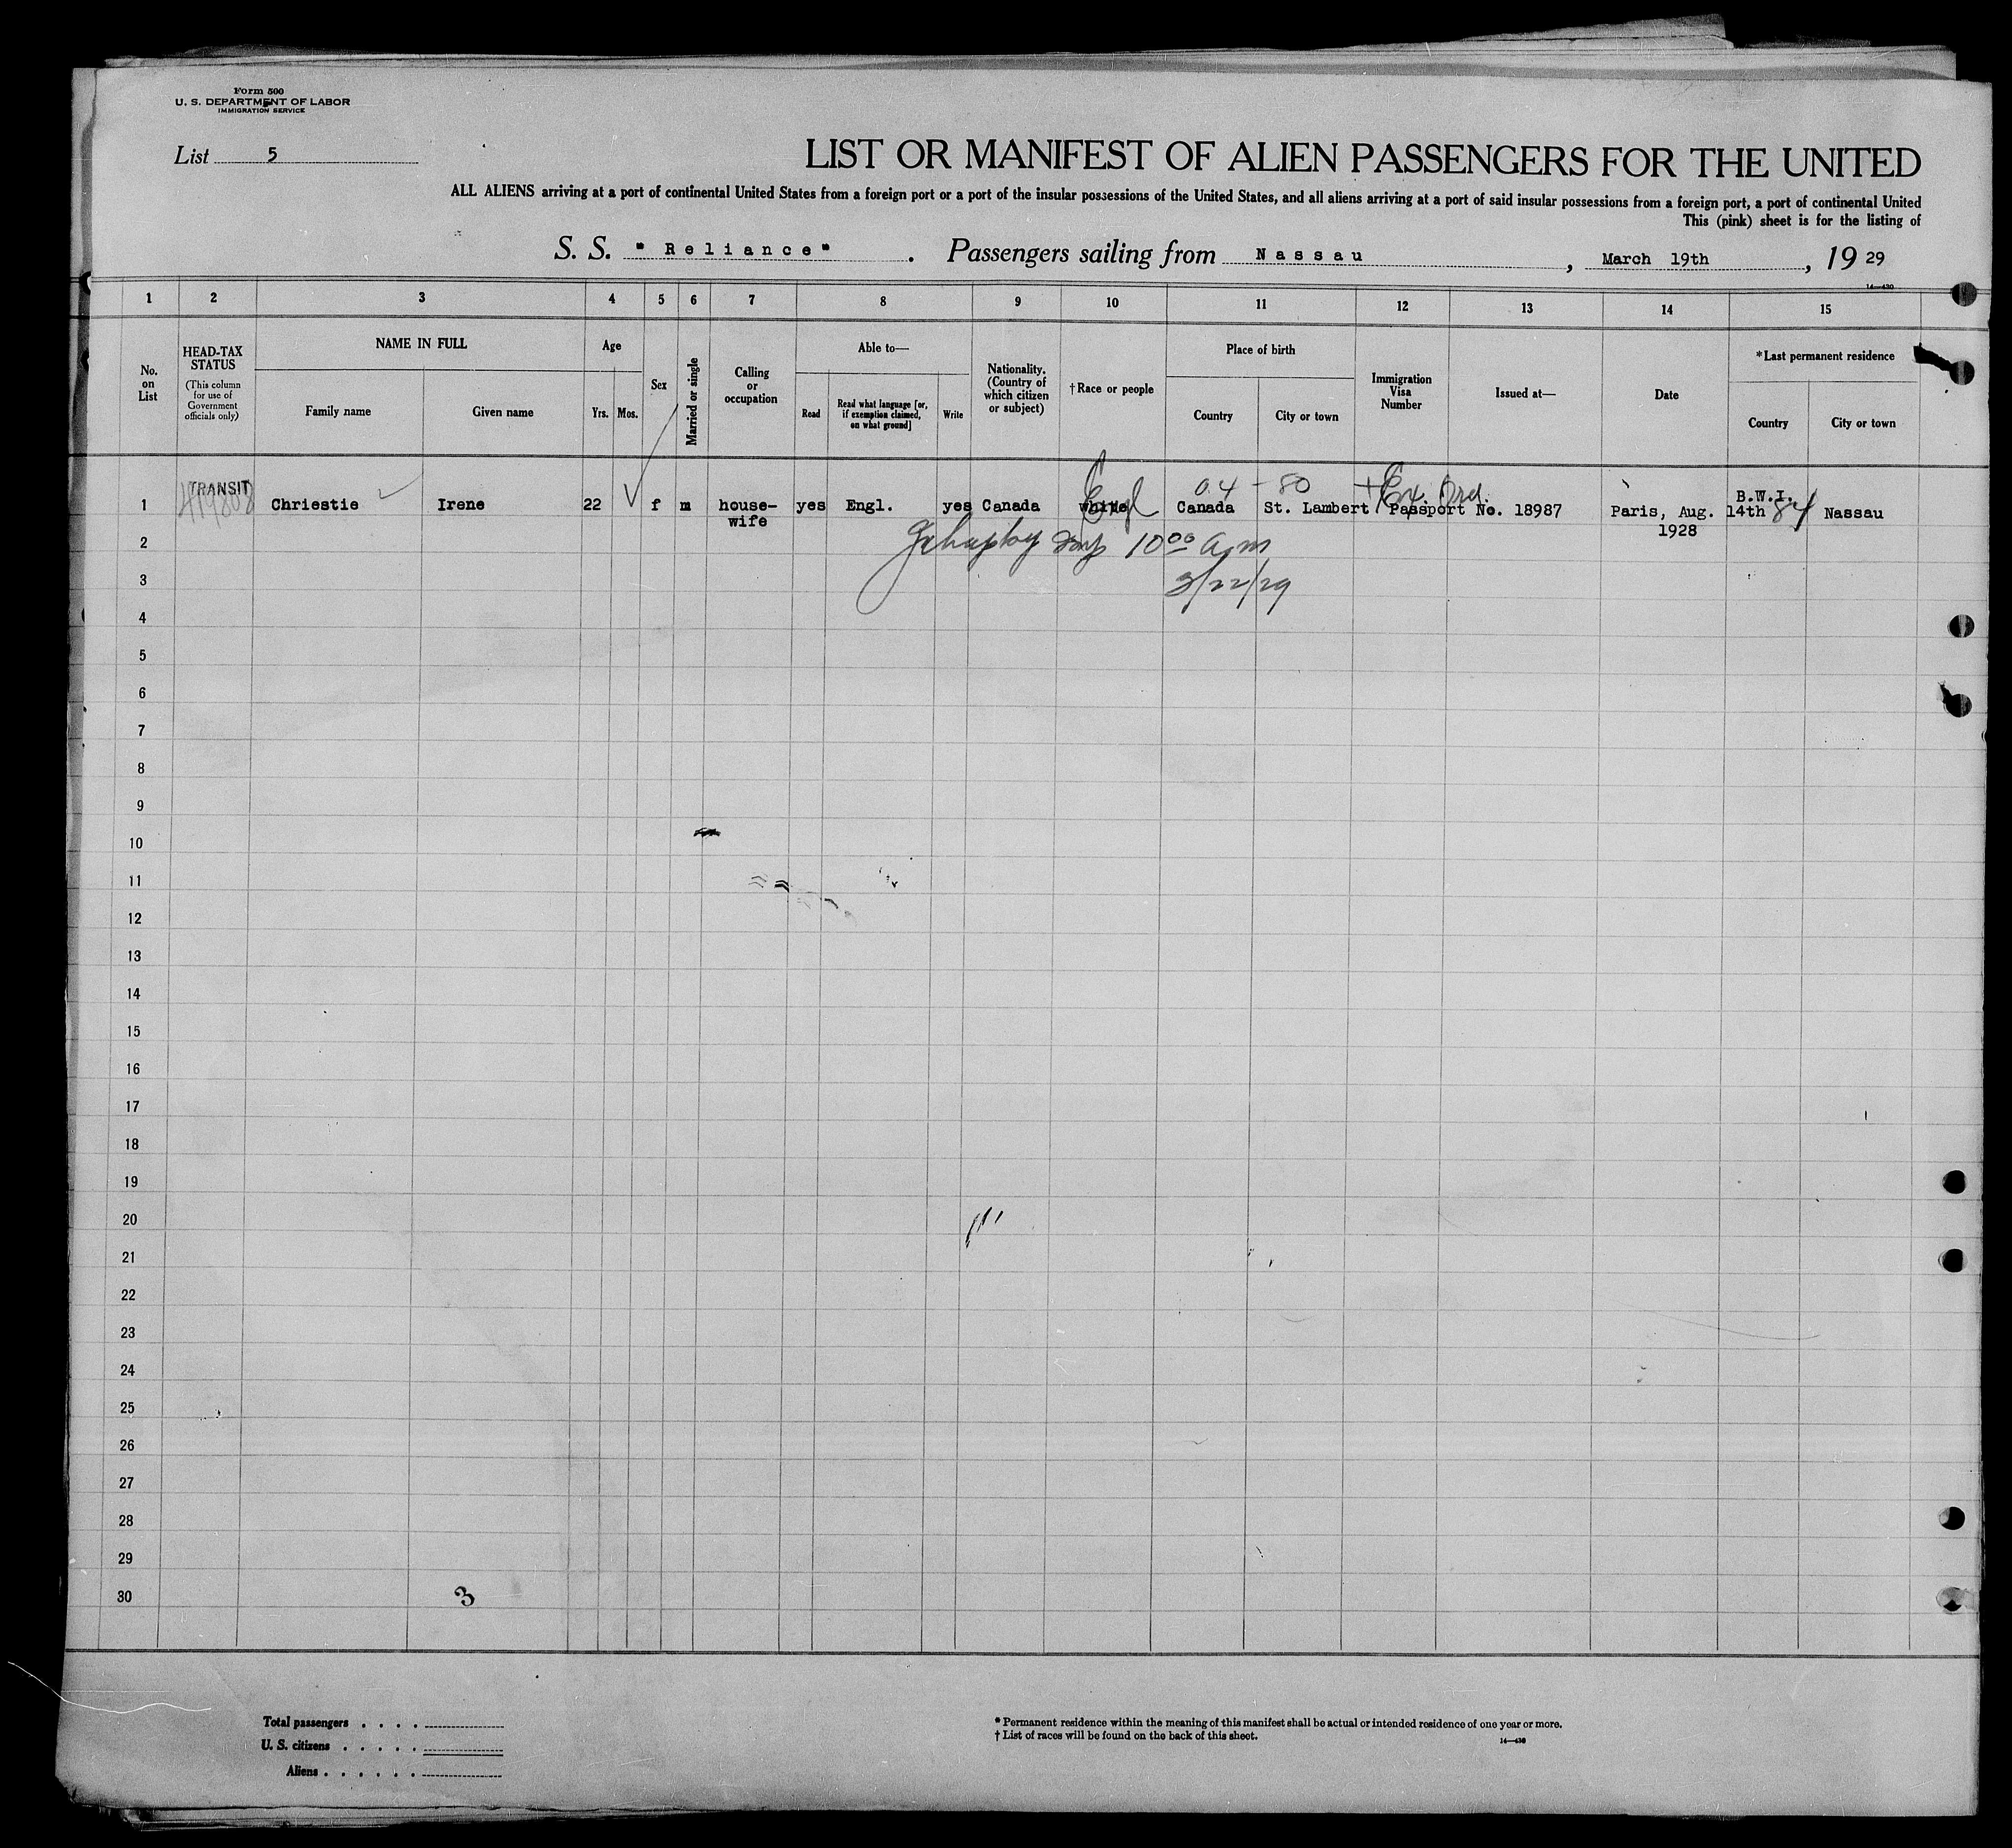 Form 500
U. S. DEPARTMENT OF LABOR
IMMIGRATION SERVICE
List 5
LIST OR MANIFEST OF ALIEN PASSENGERS FOR THE UNITED
ALL ALIENS arriving at a port of continental United States from a foreign port or a port of the insular possessions of the United States, and all aliens arriving at a port of said insular possessions from a foreign port, a port of continental United
This (pink) sheet is for the listing of
S. S. "Reliance". Passengers sailing from Nassau, March 19th, 19 29
14—430
1 2 3 4 5 6 7 8 9 10 11 12 13 14 15
No. on List
HEAD-TAX STATUS (This column for use of Government officials only)
NAME IN FULL
Family name Given name
Age
Yrs. Mos.
Sex
Married or single
Calling or occupation
Able to—
Read Read what language [or, if exemption claimed, on what ground] Write
Nationality. (Country of which citizen or subject)
†Race or people
Place of birth
Country City or town
Immigration Visa Number
Issued at—
Date
*Last permanent residence
Country City or town
04 - 80
1 TRANSIT Chriestie Irene 22 f m house-wife yes Engl. yes Canada white Engl Canada St. Lambert Passport No. 18987 Paris, Aug. 14th 1928 B.W.I. 84 Nassau
2 10 00 a m
3 3/22/29
4
5
6
7
8
9
10
11
12
13
14
15
16
17
18
19
20
21
22
23
24
25
26
27
28
29
30
3
Total passengers . . . .
U. S. citizens . . . . .
Aliens . . . . . .
* Permanent residence within the meaning of this manifest shall be actual or intended residence of one year or more.
† List of races will be found on the back of this sheet.
14—430